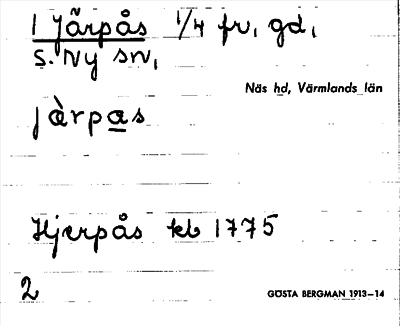 1 Järpås 1/4 fr, gd,
S. Ny sn,
Näs hd, Värmlands län
jàrpas
Hjerpås kb 1775
2
GÖSTA BERGMAN 1913–14